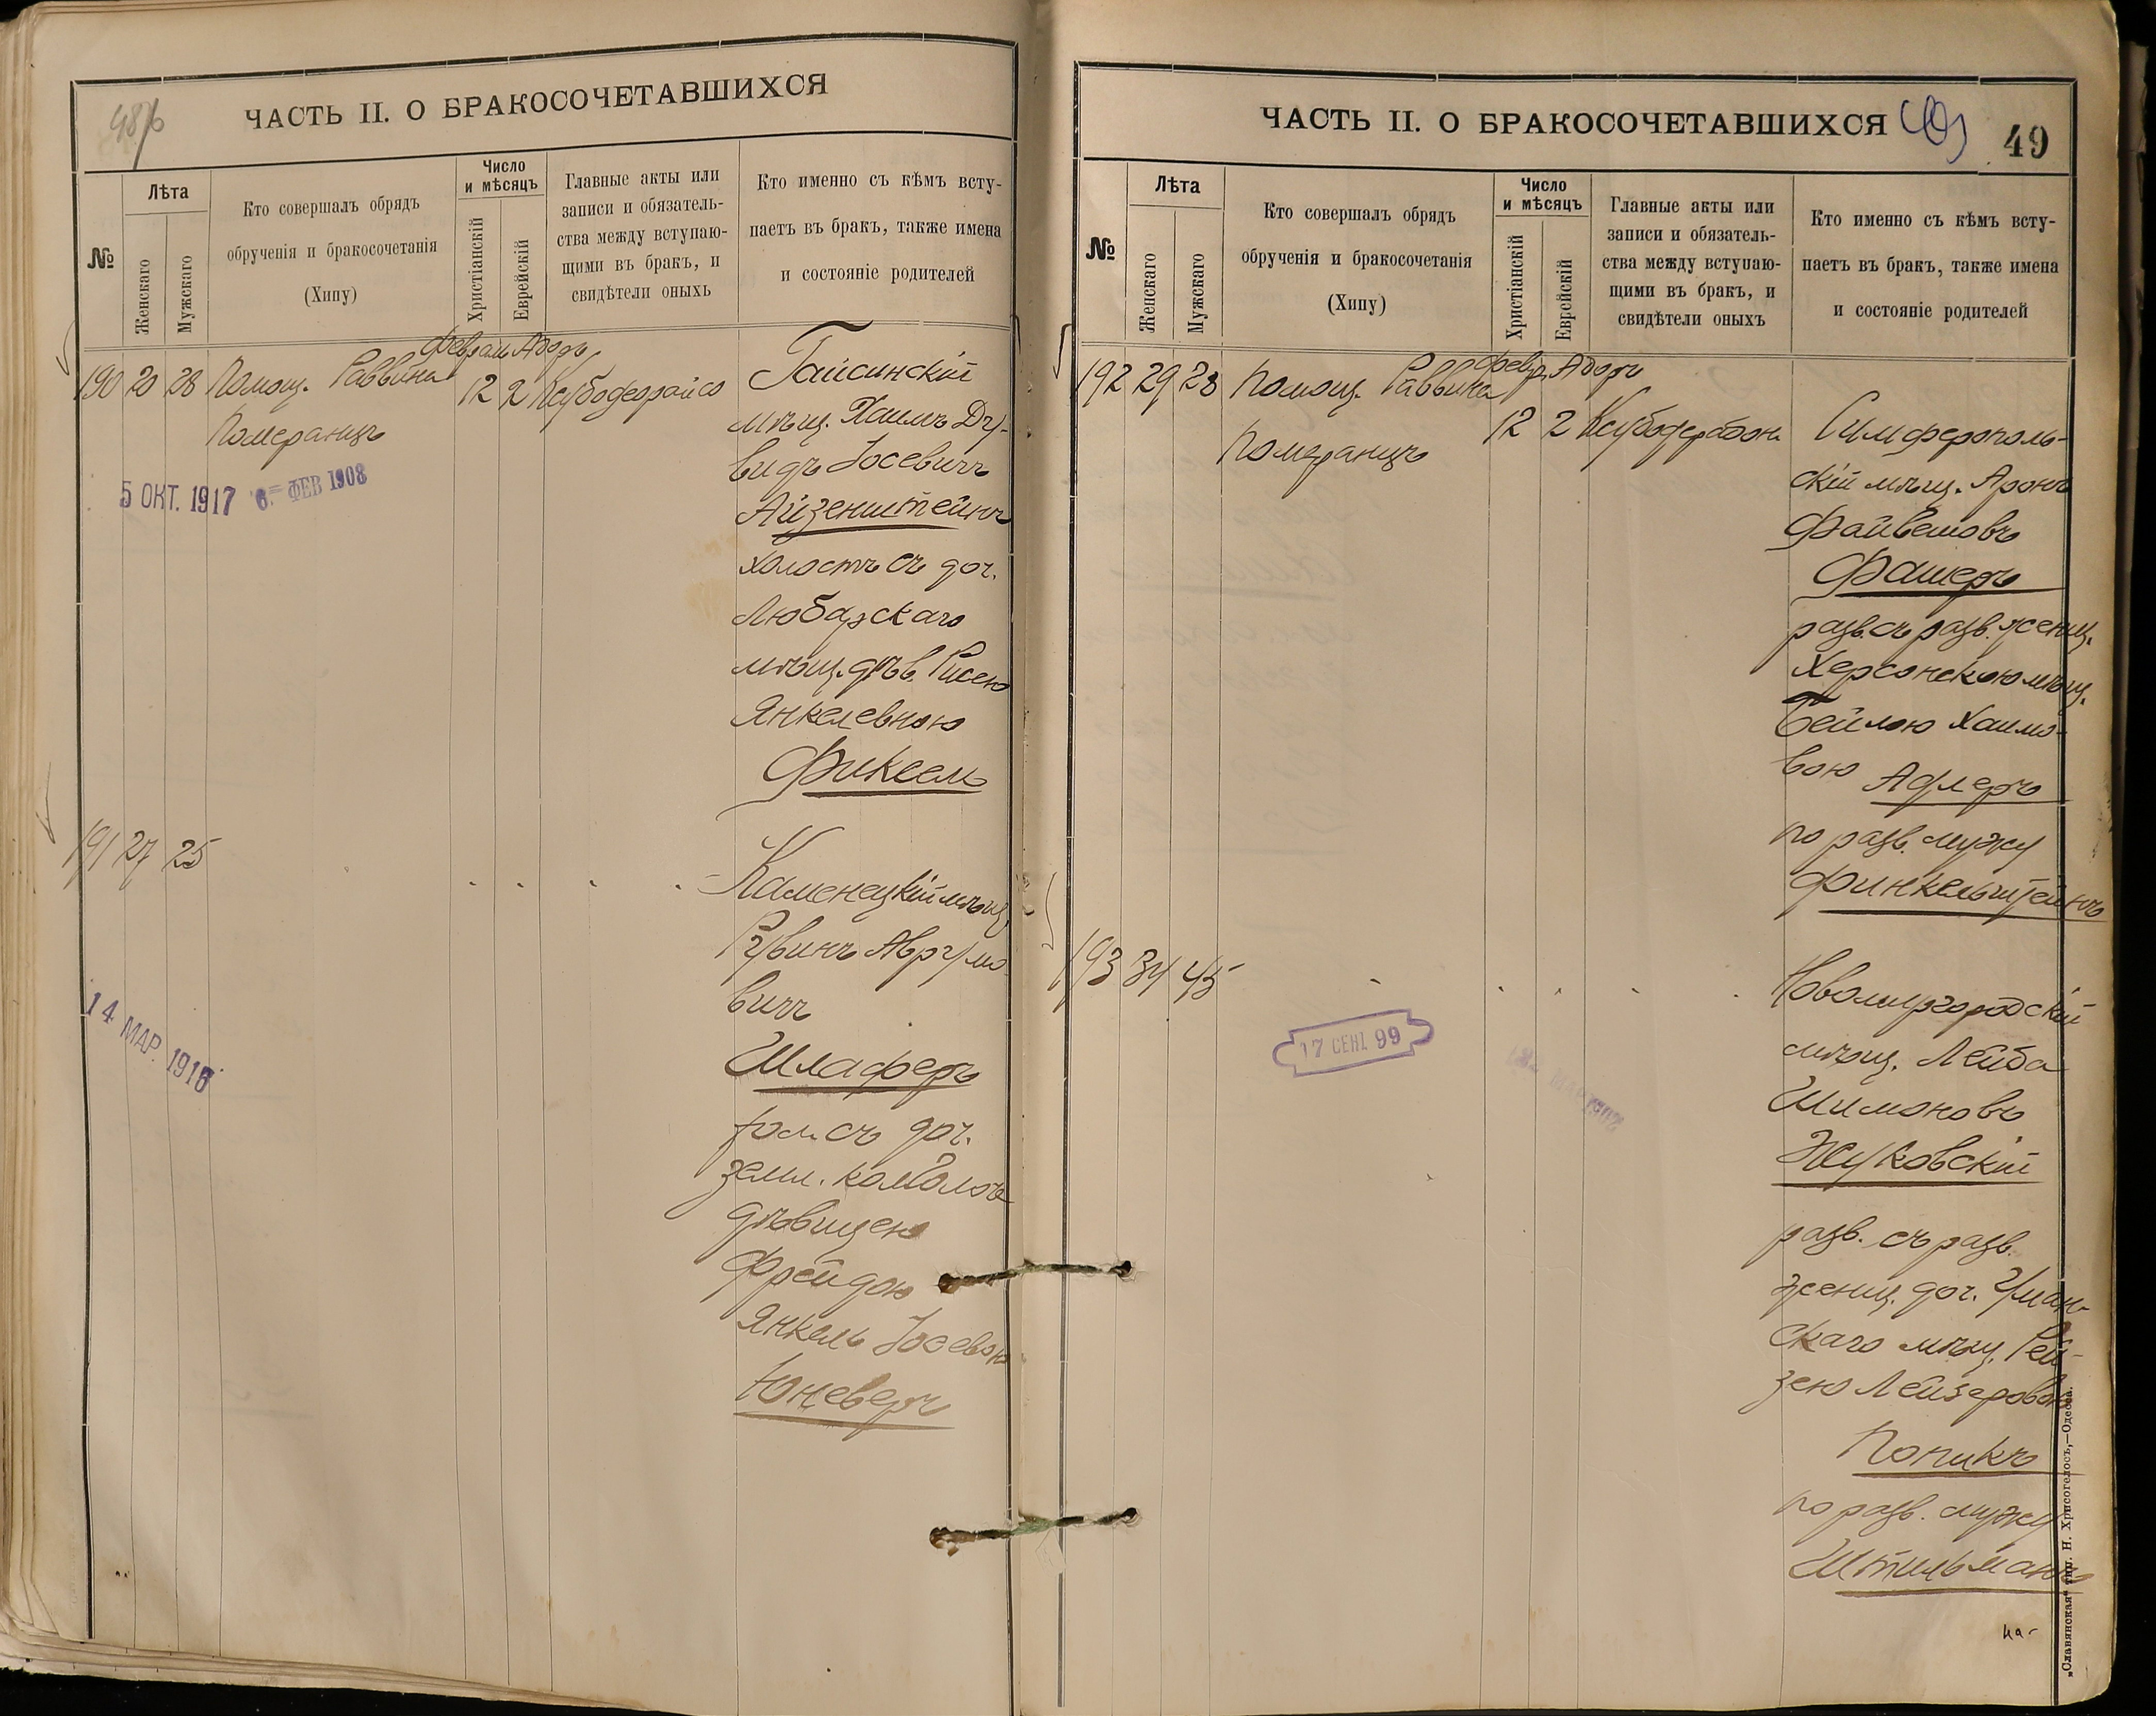 48/б
ЧАСТЬ II. О БРАКОСОЧЕТАВШИХСЯ
№
Лѣта
Женскаго
Мужскаго
Кто совершалъ обрядъ
обрученія и бракосочетанія
(Хипу)
Число
и мѣсяцъ
Христіанскій
Еврейскій
Главные акты или
записи и обязатель-
ства между вступаю-
щими въ бракъ, и
свидѣтели оныхь
Кто именно съ кѣмъ всту-
паетъ въ бракъ, также имена
и состояніе родителей
Февраль Адаръ
190 20 28 Помощ. Раввина 12 2
Померанцъ
5 ОКТ. 1917 6. ФЕВ 1908
Гайсинскій
мѣщ. Хаимъ Ду-
видъ Іосевичъ
Айзенштейнъ
холостъ съ доч.
Любарскаго
мѣщ. дѣв. Рисею
Янкелевною
Фиксель
191 27 25
14 МАР. 1916
Каменецкій мѣщ.
Рувинъ Аврумо-
вичъ
Шлаферъ
хол. съ доч.
земл. кол.
дѣвицею
Фрейдою
Янкель Іосевою
Юневеръ
ЧАСТЬ II. О БРАКОСОЧЕТАВШИХСЯ
49
№
Лѣта
Женскаго
Мужскаго
Кто совершалъ обрядъ
обрученія и бракосочетанія
(Хипу)
Число
и мѣсяцъ
Христіанскій
Еврейскій
Главные акты или
записи и обязатель-
ства между вступаю-
щими въ бракъ, и
свидѣтели оныхъ
Кто именно съ кѣмъ всту-
паетъ въ бракъ, также имена
и состояніе родителей
Февр. Адаръ
192 29 28 Помощ. Раввина
Померанцъ 12 2
Симферополь-
скій мѣщ. Аронъ
Файвешовъ
Фашеръ
разв. съ разв. женщ.
Херсонскою мѣщ.
Бейлою Хаимо-
вою Адлеръ
по разв. мужу
Финкельштейнъ
193 34 45
17 СЕН. 99
Новомиргородскій
мѣщ. Лейба
Шимоновъ
Жуковскій
разв. съ разв.
женщ. доч. Уман-
скаго мѣщ. Рей-
зею Лейзеровою
Попикъ
по разв. мужу
Штильманъ
на-
„Славянская" тип. Н. Хрисогелосъ,—Одесса.